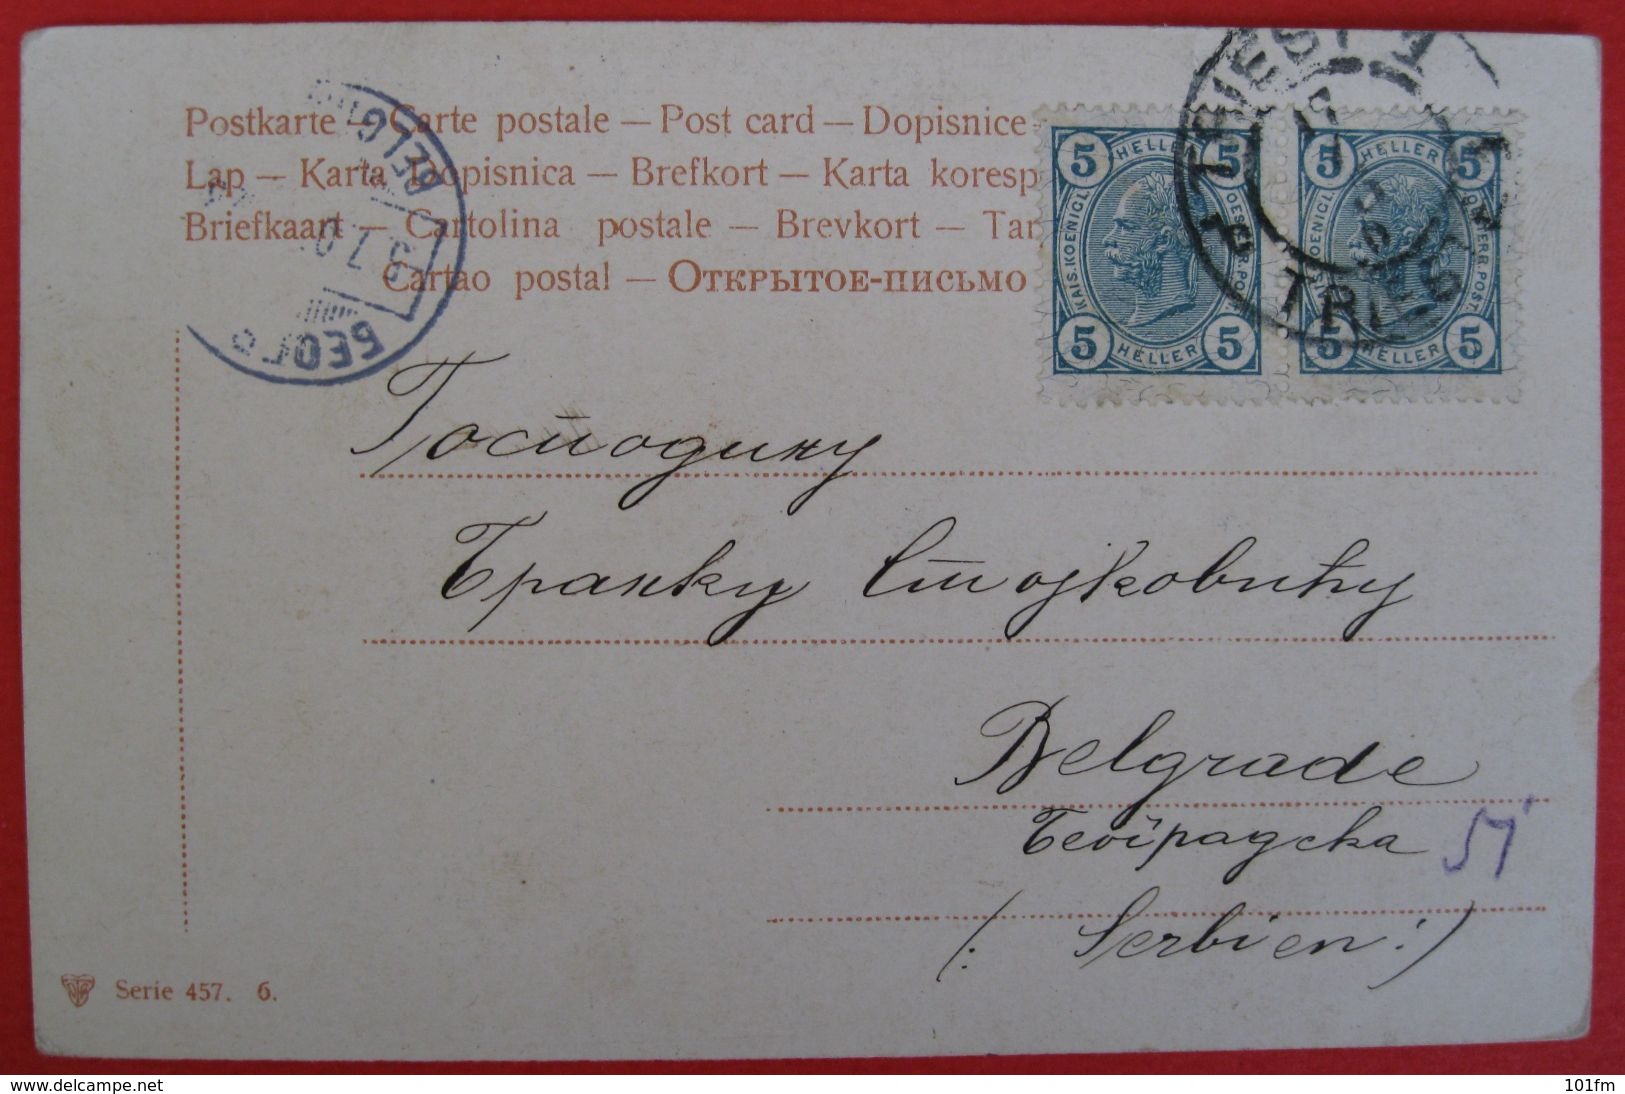 Postkarte — Carte postale — Post card — Dopisnice
Lap — Karta Dopisnica — Brefkort — Karta koresp
Briefkaart — Cartolina postale — Brevkort — Tar
Cartao postal — Открытое-письмо
5 HELLER 5
KAIS. KOENIGL. OESTERR. POST
5 HELLER 5
5 HELLER 5
5 HELLER 5
TRIEST
TRIEST
BELG
БЕОГР
Господину
Бранку Стојковићу
Belgrade
Београдска 51
(: Serbien :)
Serie 457. 6.
www.delcampe.net
101fm